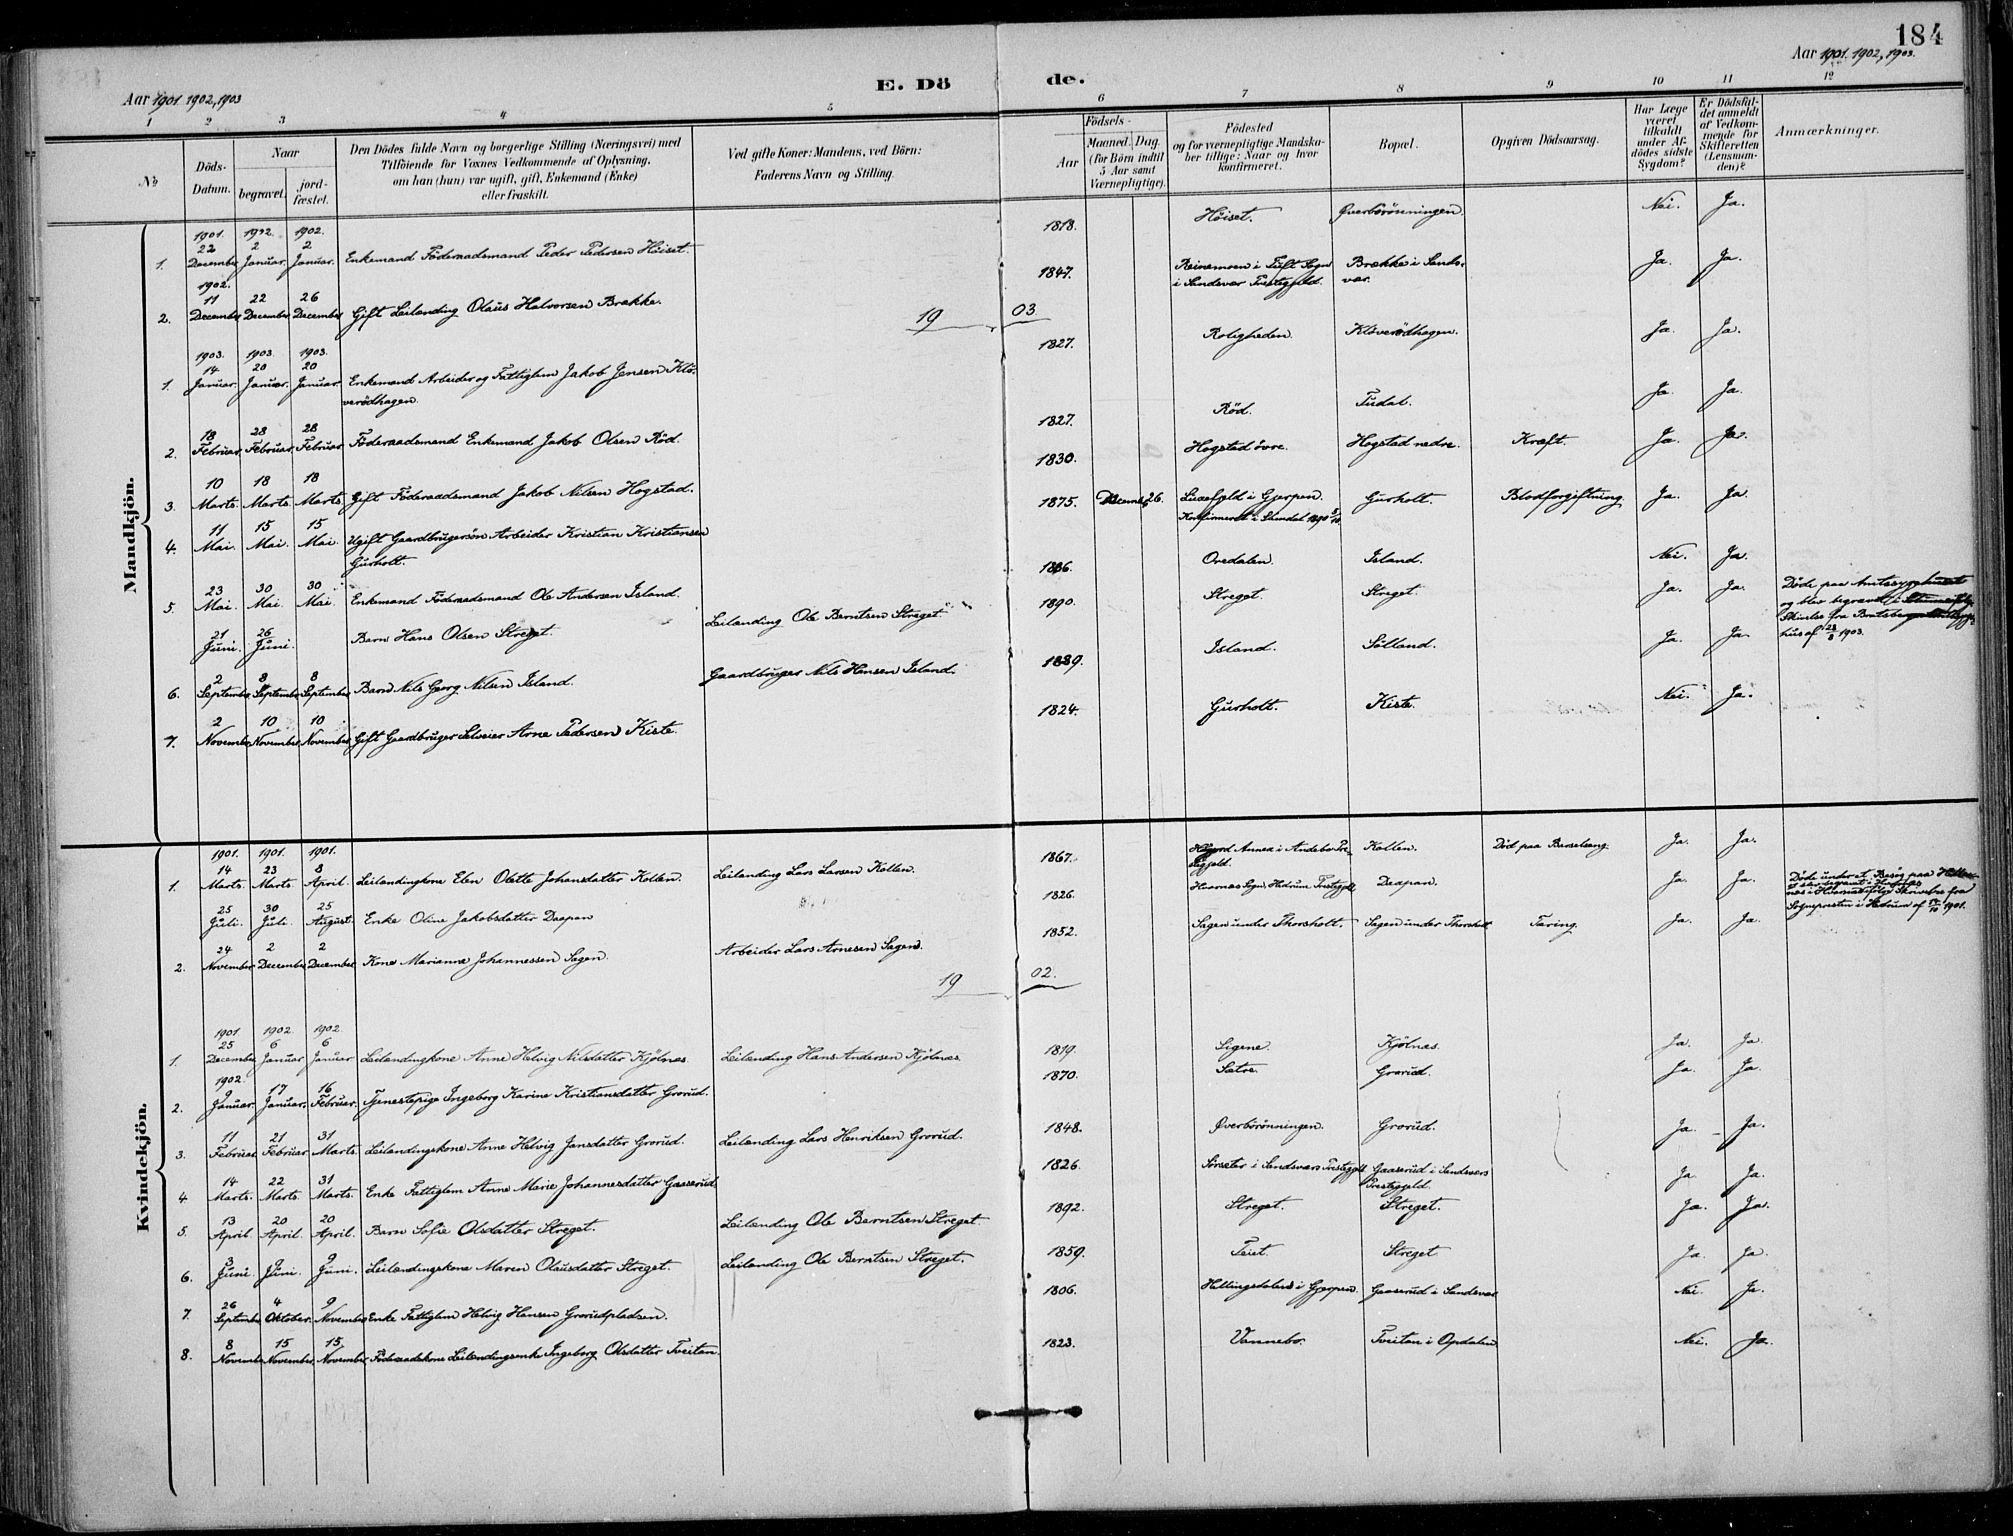 184
Aar 1901. 1902, 1903
E. Dö de.
Aar 1901. 1902, 1903.
1 2 3 4 5 6 7 8 9 10 11 12
No
Döds-Datum.
Naar
begravet.
jord-fæstet.
Den Dödes fulde Navn og borgerlige Stilling (Næringsvei) med
Tilföiende for Voxnes Vedkommende af Oplysning,
om han (hun) var ugift, gift, Enkemand (Enke)
eller fraskilt.
Ved gifte Koner: Mandens, ved Börn:
Faderens Navn og Stilling.
Födsels-
Aar
Maaned. Dag.
(for Börn indtil
5 Aar samt
Værnepligtige).
Födested
og for værnepligtige Mandska-
ber tillige: Naar og hvor
konfirmeret.
Bopæl.
Opgiven Dödsaarsag.
Har Læge
været
tilkaldt
under Af-
dödes sidste
Sygdom?
Er Dödsfal-
det anmeldt
af Vedkom-
mende for
Skifteretten
(Lensman-
den)?
Anmærkninger.
Mandkjön.
1901. 1902. 1902.
1. 22 December 2 Januar. 2 Januar. Enkemand Föderaadsmand Peder Pedersen Höiset. 1818. Höiset. Øverbörönningen. Nei. Ja.
1902.
2. 11 December 22 December 26 December Gift Leilænding Olaus Halvorsen Brække. 1847. Reinemoen i Tuft Sogn i Sandsvær Prestegjeld. Brække i Sandsvær. Ja. Ja.
19 03
1903. 1903. 1903.
1. 14 Januar. 20 Januar. 20 Januar. Enkemand Arbeider og Fattiglem Jakob Jensen Klöverödhagen. 1827. Roligheden. Klöverödhagen. Ja. Ja.
2. 18 Februar 28 Februar 28 Februar Föderaadsmand Enkemand Jakob Olsen Röd. 1827. Röd. Tudal. Ja. Ja.
3. 10 Marts. 18 Marts. 18 Marts. Gift Föderaadsmand Jakob Nilsen Hogstad. 1830. Hogstad övre. Hogstad nedre. Kræft. Ja. Ja.
4. 11 Mai. 15 Mai. 15 Mai. Ugift Gaardbrugersön Arbeider Kristian Kristiansen Gurholt. 1875. December 26. Luxefjeld i Gjerpen. Konfirmeret i Slemdal 1890 5/10 Gurholt. Blodforgiftning. Ja. Ja.
5. 23 Mai. 30 Mai. 30 Mai. Enkemand Föderaadsmand Ole Andersen Island. 1836. Oredalen. Island. Nei. Ja.
21 Juni. 26 Juni. Barn Hans Olsen Streget. Leilænding Ole Berntsen Streget. 1890. Streget. Streget. Ja. Ja. Döde paa Amtssygehuset og blev begravet i
Skrivelse fra
hus af 28/8 1903.
6. 2 September 8 September 8 September Barn Nils Georg Nilsen Island. Gaardbruger Nils Hansen Island. 1889. Island. Sölland. Ja. Ja.
7. 2 November 10 November 10 November Gift Gaardbruger Selveier Arne Pedersen Kiste. 1824. Gurholt. Kiste. Nei. Ja.
Kvindekjön.
1901. 1901. 1901.
1. 14 Marts. 23 Marts. 8 April. Leilændingkone Elen Olette Johansdatter Kollen. Leilænding Lars Larsen Kollen. 1867. Höjord Annex i Andebo Prestegjeld. Kollen. Död paa Barselseng. Ja. Ja.
25 Juli. 30 Juli. 25 August. Enke Oline Jakobsdatter Deapan 1826. Hvarnæs Sogn, Hedrum Prestegjeld Deapan. Ja. Ja. Döde under et Besög paa
Sognepresten i Hedrum af 1901.
2. 24 November 2 December 2 December. Kone Marianne Johannessen Sagen. Arbeider Lars Arnesen Sagen. 1852. Sagen under Thorsholt. Sagen under Thorsholt Tæring. Ja. Ja.
19 02.
1901. 1902. 1902.
1. 25 December 6 Januar 6 Januar Leilændingkone Anne Helvig Nilsdatter Kjölnæs. Leilænding Hans Andersen Kjölnæs. 1819. Ligene. Kjölnæs. Ja. Ja.
1902.
2. 9 Januar. 17 Januar. 16 Februar. Tjenestepige Ingeborg Karine Kristiansdatter Grorud. 1870. Sætre. Grorud. Ja. Ja.
3. 11 Februar 21 Februar 31 Marts. Leilændingskone Anne Helvig Jensdatter Grorud. Leilænding Lars Henriksen Grorud. 1848. Øverbörönningen. Grorud. Ja. Ja.
4 14 Marts. 22 Marts. 31 Marts. Enke Fattiglem Anne Marie Johannesdatter Gaaserud 1826. Sörseter i Sandsværs Prestegjeld. Gaaserud i Sandsværs Prestegjeld. Ja. Ja.
5. 13 April. 20 April. 20 April. Barn Sofie Olsdatter Streget. Leilænding Ole Berntsen Streget 1892. Streget. Streget. Ja. Ja.
6. 3 Juni 9 Juni. 9 Juni. Leilændingskone Maren Olausdatter Streget. Leilænding Ole Berntsen Streget. 1859. Teiet. Streget Ja. Ja.
7. 26 September 4 Oktober. 9 November Enke Fattiglem Helvig Hansen Grorudpladsen. 1806. Hellingsdalen i Gjerpen. Gaaserud i Sandsvær Nei. Ja.
8. 8 November 15 November 15. November Föderaadskone Leilændingsenke Ingeborg Olsdatter Tveitan. 1823. Vannebo. Tveitan i Opdalen Nei. Ja.